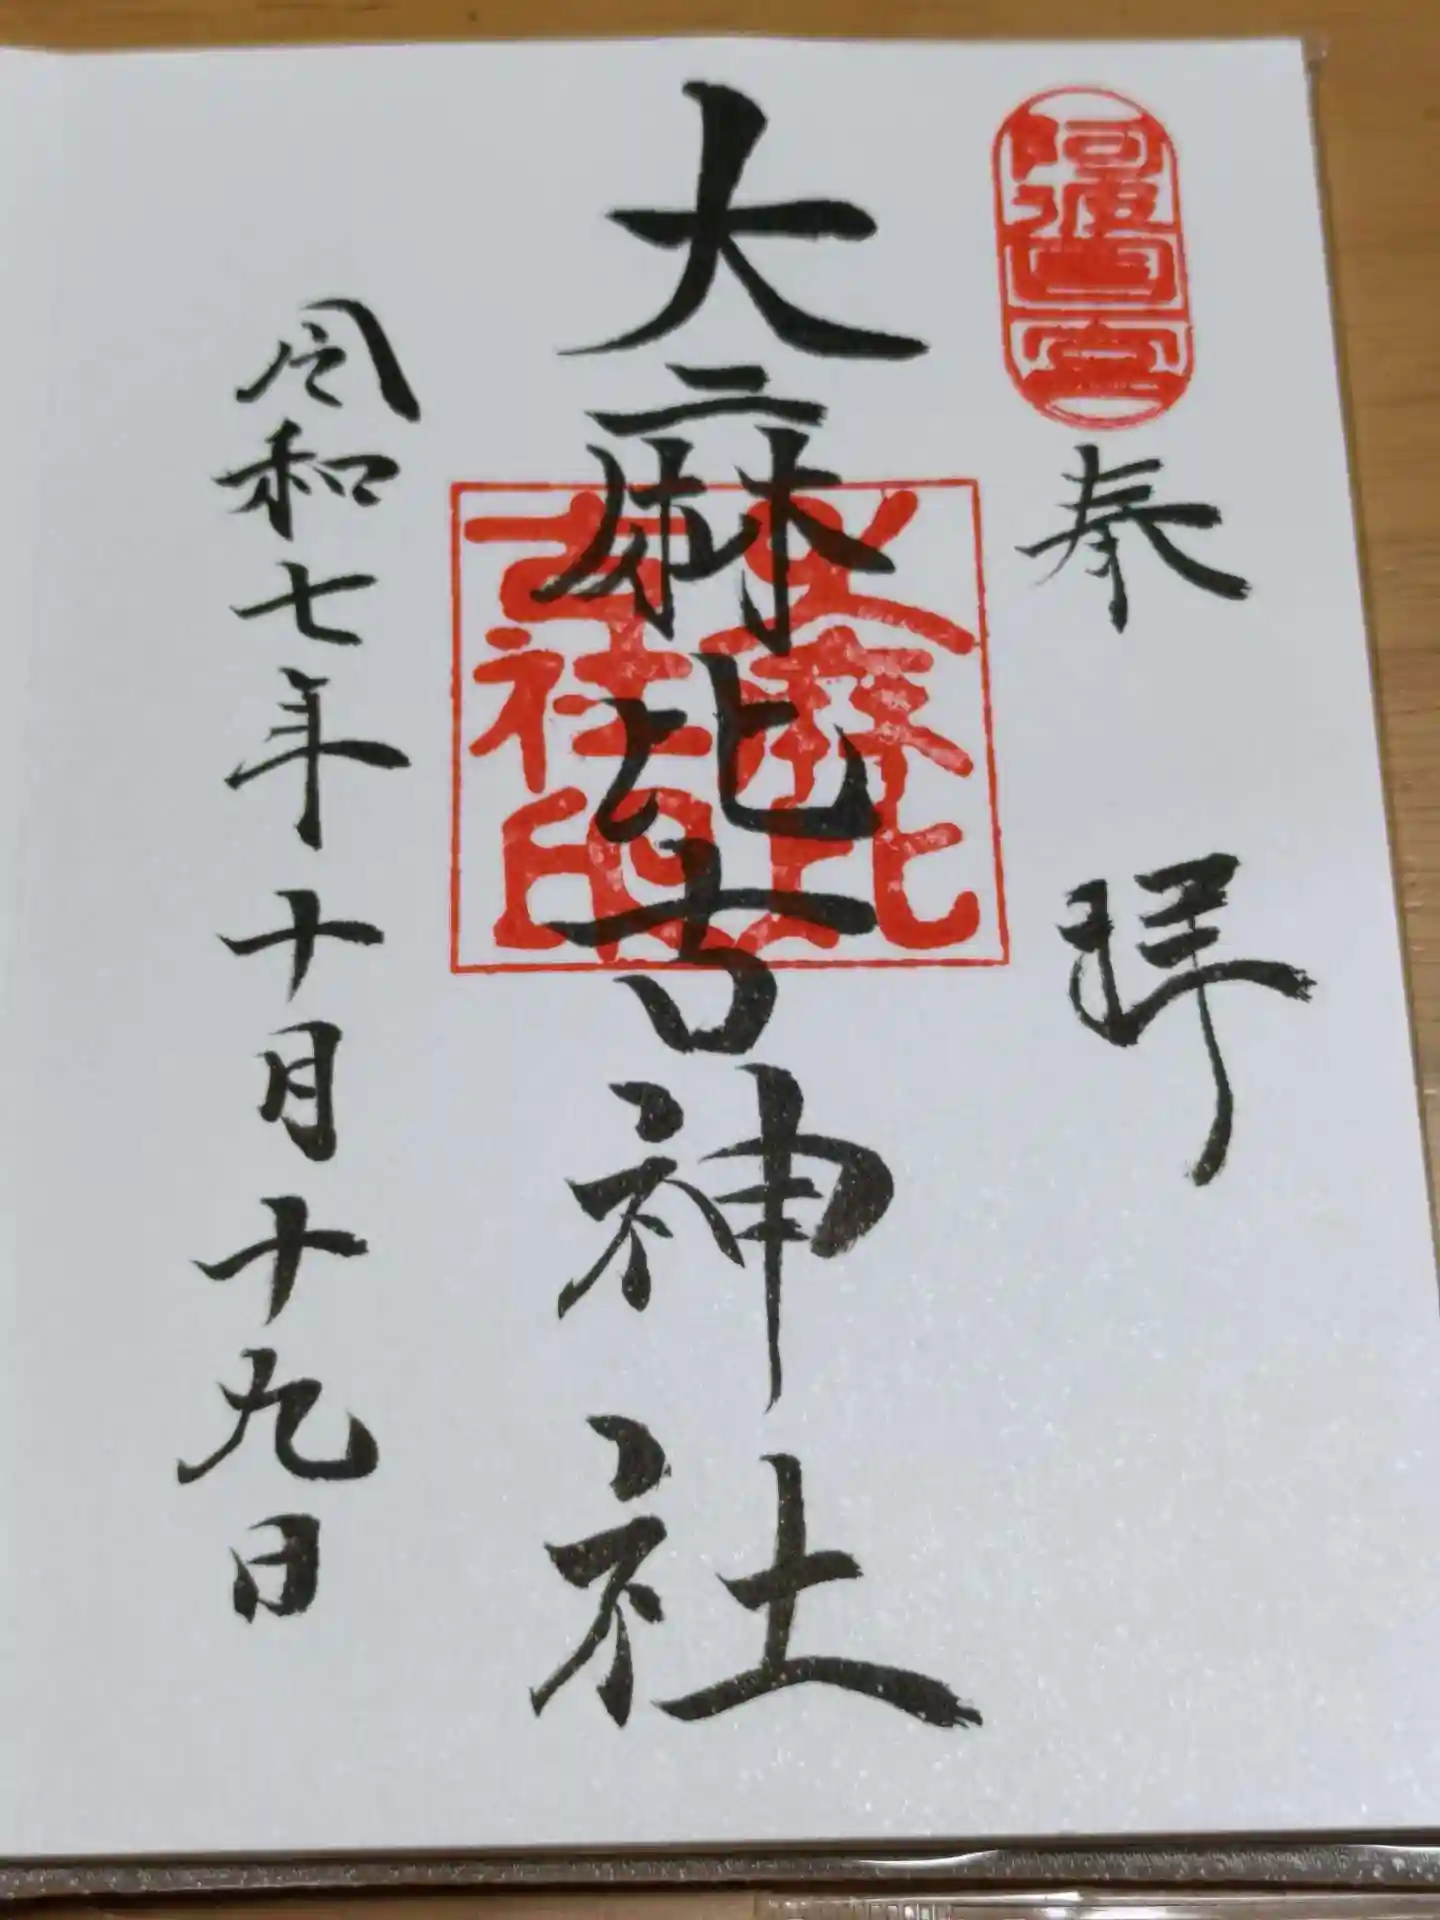 阿波国一宮
奉拝
大麻比古神社
大麻比古社印
令和七年十月十九日